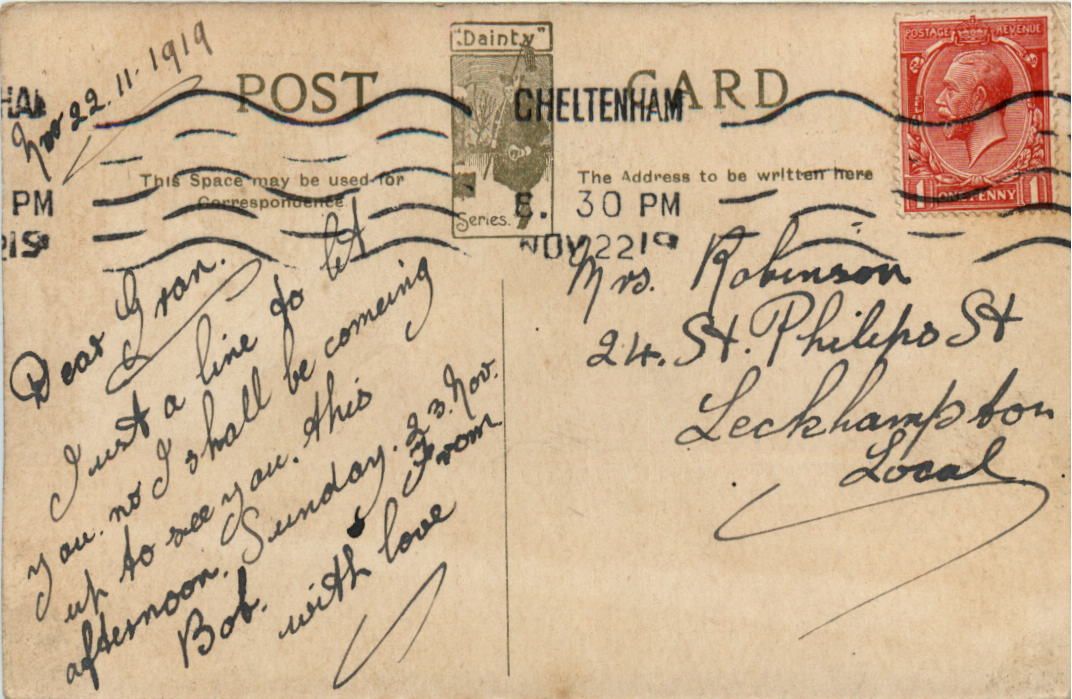 Nov 22.11.1919
POST CARD
"Dainty"
Series.
CHELTENHAM
8. 30 PM
NOV 22 19
HAM
PM
19
POSTAGE REVENUE
1 ONE PENNY 1
This Space may be used for
Correspondence.
The Address to be written here
Dear Gran.
Just a line to let
you no I shall be comeing
up to see you. this
afternoon. Sunday. 23. Nov.
From
Bob. with love
Mrs. Robinson
24. St. Philips St
Leckhampton
Local